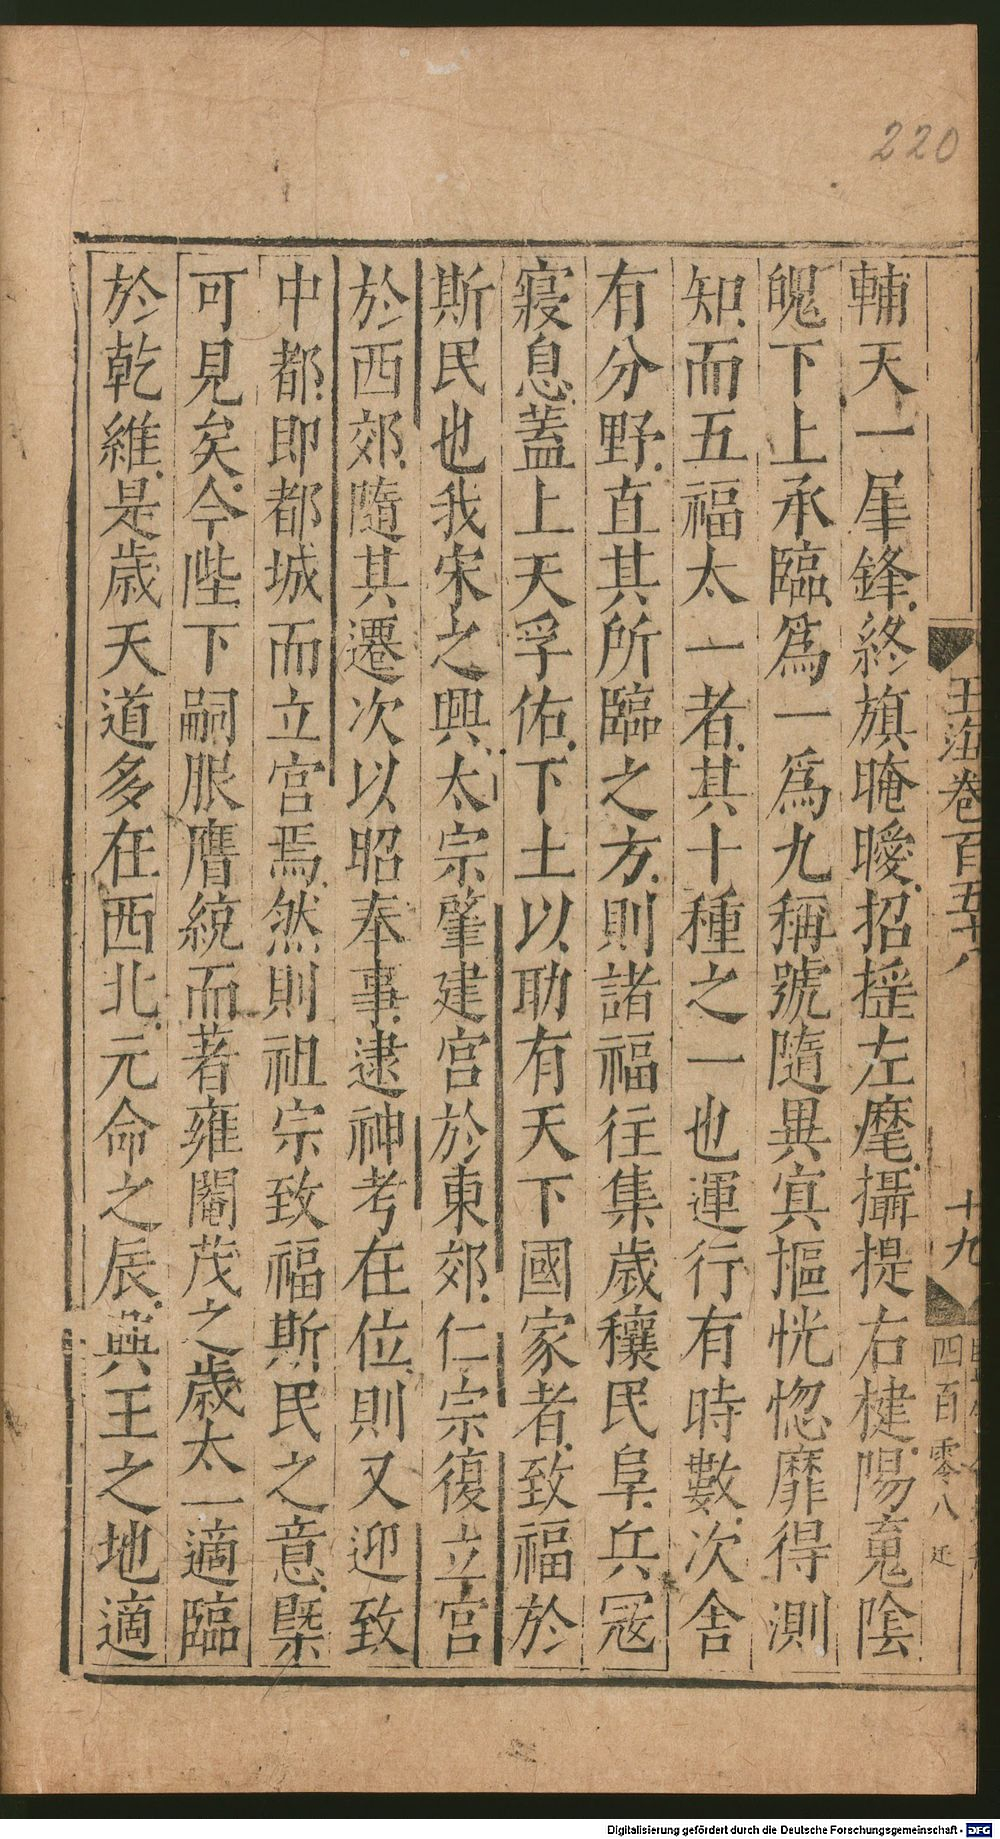 220
玉海卷百五十八
十九
四百零八
輔天一犀鋒終旗晻曖招揺左麾攝提右楗陽䰟陰
魄下上承臨爲一爲九稱號隨異寘摳恍惚靡得測
知而五福太一者其十種之一也運行有時數次舍
有分野直其所臨之方則諸福往集歲穰民阜兵冦
寢息蓋上天孚佑下土以助有天下國家者致福於
斯民也我宋之興太宗肇建宮於東郊仁宗復立宮
於西郊隨其遷次以昭奉事逮神考在位則又迎致
中都即都城而立宮焉然則祖宗致福斯民之意槩
可見矣今陛下嗣服膺統而著雍閹茂之歲太一適臨
於乾維是歲天道多在西北元命之辰興王之地適
Digitalisierung gefördert durch die Deutsche Forschungsgemeinschaft - DFG